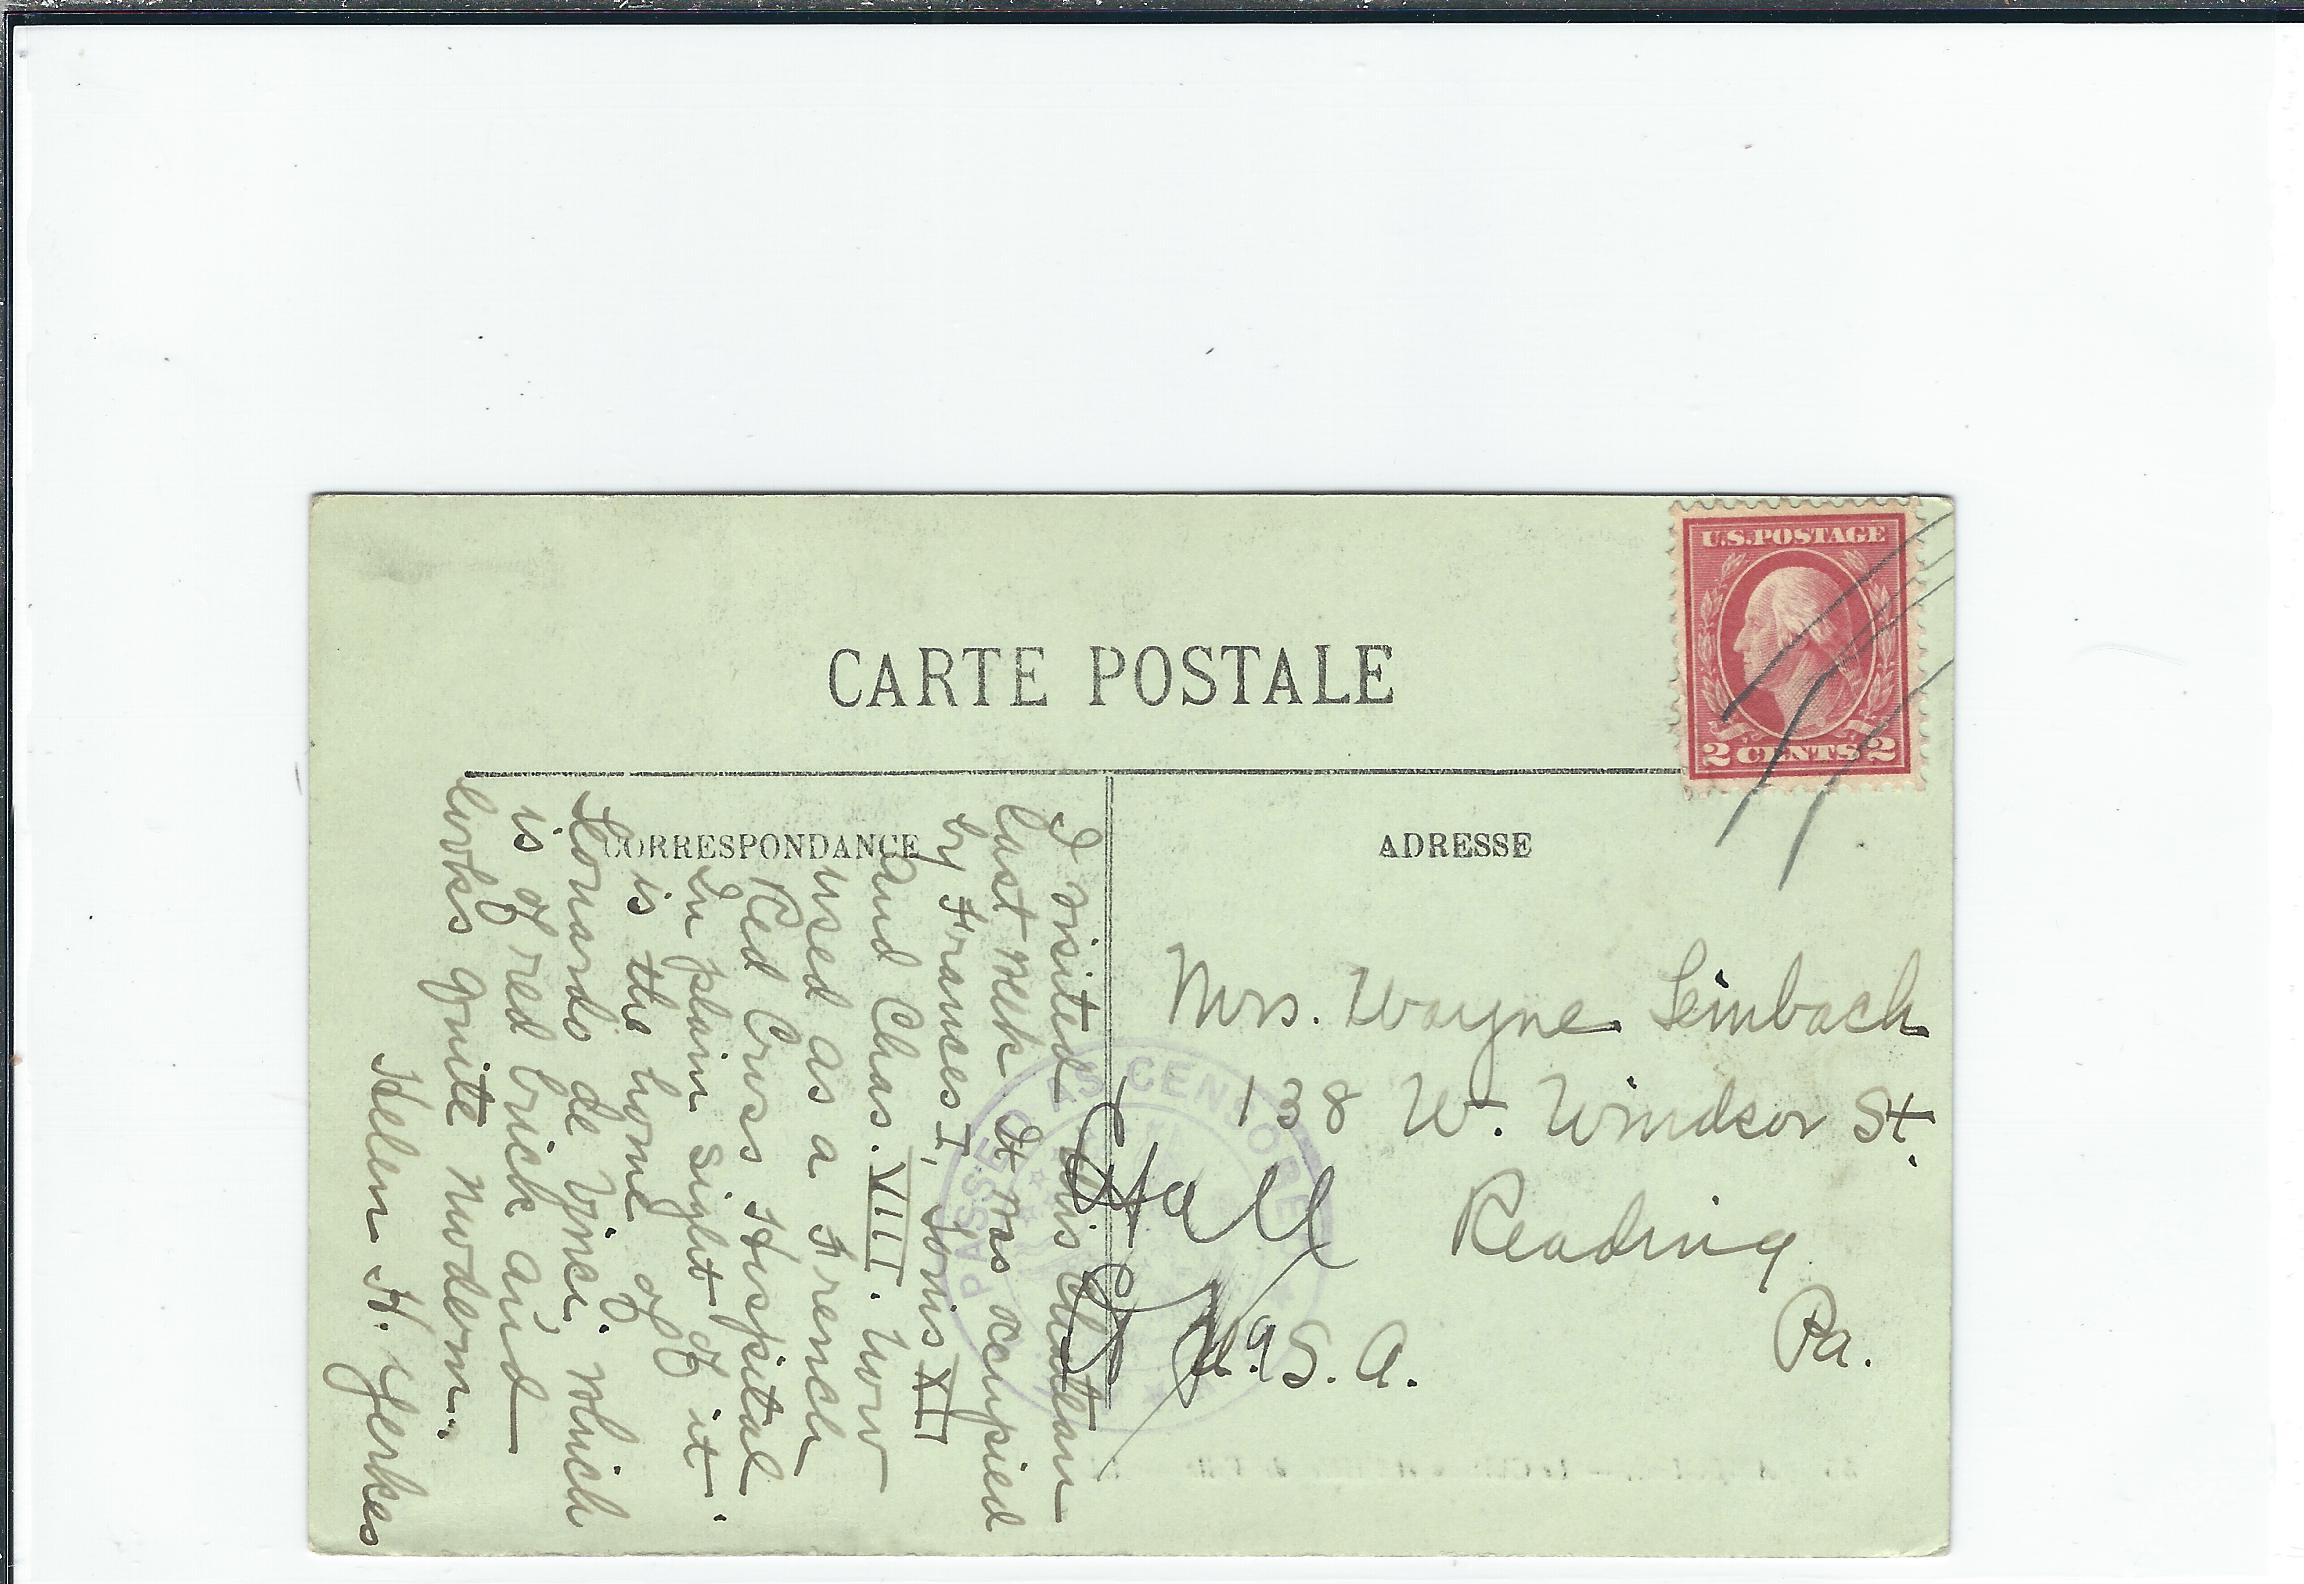 U.S. POSTAGE
2 CENTS 2
CARTE POSTALE
CORRESPONDANCE
ADRESSE
I visited this Chateau
last week It was occupied
by Frances I, Louis XII
and Chas. VIII. Now
used as a French
Red Cross Hospital
In plain sight of it.
is the home of
Leonardo de Vinci. which
is of red brick and
looks quite modern.
Helen H. Yerkes
Mrs. Wayne Leinbach
138 W. Windsor St.
Reading
Pa.
U.S.A.
PASSED AS CENSORED